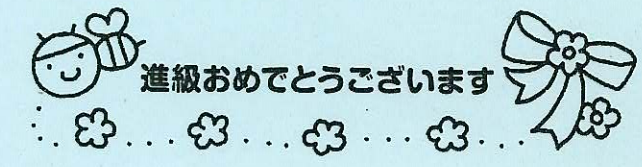 進級おめでとうございます